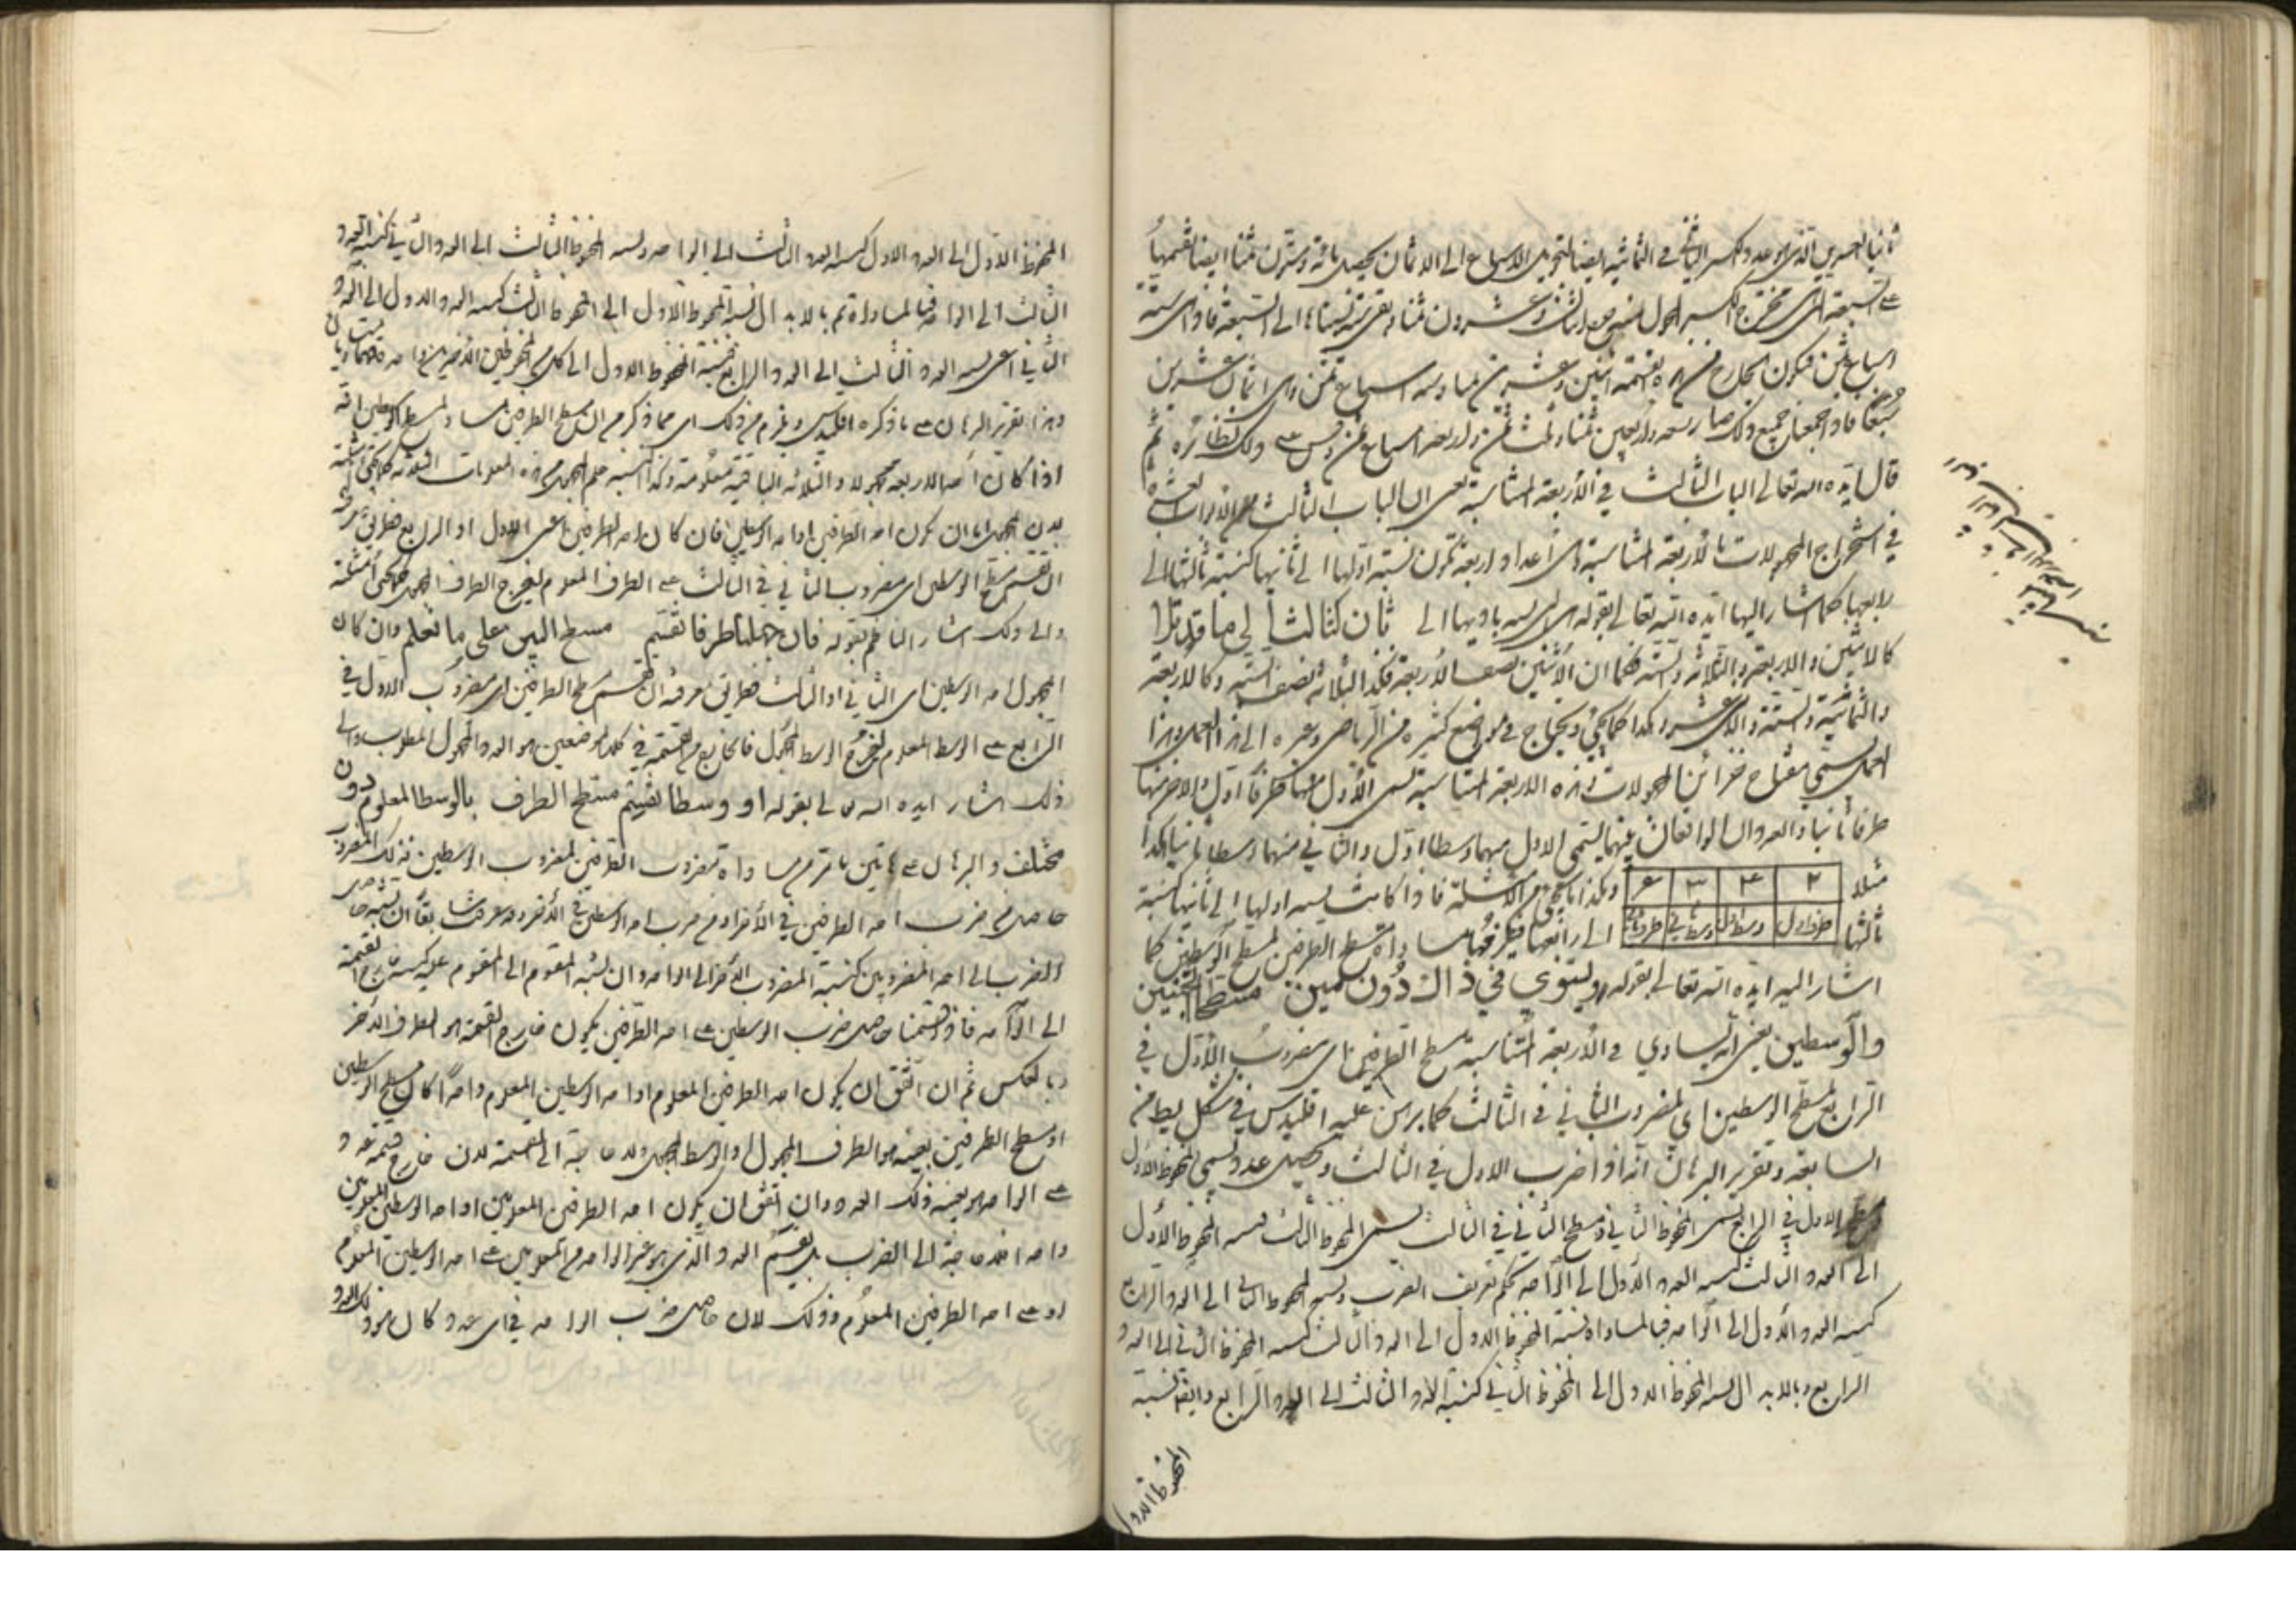 ثانيا العشرين الذى هو عدد الكسر الثانى فى الثمانية ايضا لتحويل الاسباع الى الاثمان يحصل مائة وستون ثمنا ايضا نقسمها
على السبعة التى مخرج الكسر المحول اثنان وعشرون ثمنا وبقى ستة نسبناها الى السبعة فاذا هى ستة
اسباع ثمن فيكون الخارج من قسمة اثنين وعشرين ثمنا وستة اسباع ثمن واى اثمان عشرين
سبعا فاذا جمعنا جميع ذلك صار سبعة واربعين ثمنا وثلث ثمن واربعة اسباع ثمن وقس على ذلك نظائره ثم
قال ايده الله تعالى الباب الثالث فى الأربعة المتناسبة يعنى ان الباب الثالث من الابواب العشرة
فى استخراج المجهولات بالأربعة المتناسبة وهى اعداد اربعة تكون نسبة اولها الى ثانيها كنسبة ثالثها الى
رابعها كما اشار اليها ايده الله تعالى بقوله اى نسبة باديها الى ثان كثالث الى ما قد تلا
كالاثنين والاربعة والثلاثة والستة فكما ان الاثنين نصف الأربعة فكذا الثلاثة نصف الستة وكالاربعة
والثمانية والستة والاثنى عشر وهكذا كما يجئ ويحتاج فى مواضع كثيرة من الرياضى وغيره الى هذا العمل وهذا
العمل يسمى مفتاح خزائن المجهولات وهذه الاربعة المتناسبة يسمى الأول منها طرفا اول والاخر منها
طرفا ثانيا والعددان الواقعان بينهما يسمى الاول منهما وسطا اول والثانى منهما وسطا ثانيا هكذا
مثلا ٢ ٤ ٣ ٦ وهكذا ما يجئ من الامثلة فاذا كانت نسبة اولها الى ثانيها كنسبة
ثالثها طرف اول وسط اول وسط ثانى طرف ثانى الى رابعها فيلزمها مساواة مسطح الطرفين لمسطح الوسطين كما
اشار اليه ايده الله تعالى بقوله ويستوى فى ذاك دون مين مسطح الجنبين
والوسطين يعنى انه يساوى فى الأربعة المتناسبة مسطح الطرفين اى مضروب الأول فى
الرابع لمسطح الوسطين اى لمضروب الثانى فى الثالث كما برهن عليه اقليدس فى شكل يط من
السابعة وتقرير البرهان انه اذا ضرب الاول فى الثالث ويحصل عدد ويسمى المحفوظ الاول
ومسطح الاول فى الرابع يسمى المحفوظ الثانى ومسطح الثانى فى الثالث يسمى المحفوظ الثالث فنسبة المحفوظ الأول
الى العدد الثالث كنسبة العدد الأول الى الواحد بحكم تعريف الضرب ونسبة المحفوظ الثانى الى العدد الرابع
كنسبة العدد الأول الى الواحد فبالمساواة نسبة المحفوظ الاول الى العدد الثالث كنسبة المحفوظ الثانى الى العدد
الرابع وبالابدال نسبة المحفوظ الاول الى المحفوظ الثانى كنسبة العدد الثالث الى العدد الرابع وايضا نسبة
المحفوظ الاول
المحفوظ الاول الى العدد الاول كنسبة العدد الثالث الى الواحد ونسبة المحفوظ الثالث الى العدد الثانى كنسبة العدد
الثالث الى الواحد فبالمساواة ثم بالابدال نسبة المحفوظ الاول الى المحفوظ الثالث كنسبة العدد الاول الى العدد
الثانى اعنى نسبة العدد الثالث الى العدد الرابع فنسبة المحفوظ الاول الى كل من المحفوظين الأخيرين واحدة فهما متساويان
وهذا تقرير البرهان على ما ذكره اقليدس ويلزم من ذلك اى مما ذكر من ان مسطح الطرفين مساو لمسطح الوسطين انه
اذا كان احد الاربعة مجهولا والثلاثة الباقية معلومة وكذا النسبة علم المجهول من هذه المعلومات الثلاثة كما يجئ امثلته
لان المجهول اما ان يكون احد الطرفين او احد الوسطين فان كان احد الطرفين اعنى الاول او الرابع فطريق معرفته
ان تقسم مسطح الوسطين اى مضروب الثانى فى الثالث على الطرف المعلوم ليخرج الطرف المجهول كما يجئ امثلته
والى ذلك اشار الناظم بقوله فان جهلنا طرفا نقسم مسطح البين على ما نعلم وان كان
المجهول احد الوسطين اى الثانى او الثالث فطريق معرفته ان تقسم مسطح الطرفين اى مضروب الاول فى
الرابع على الوسط المعلوم ليخرج الوسط المجهول فالخارج من القسمة فى كلا الموضعين هو العدد المجهول المطلوب والى
ذلك اشار ايده الله تعالى بقوله او وسطا نقسم مسطح الطرف بالوسط المعلوم دون
مختلف والبرهان على هاتين ما مر من مساواة مضروب الطرفين لمضروب الوسطين فذلك المضروب
حاصل من ضرب احد الطرفين فى الأخر او من ضرب احد الوسطين فى الأخر وقد عرفت سابقا ان نسبة حاصل
الضرب الى احد المضروبين كنسبة المضروب الأخر الى الواحد وان نسبة المقسوم الى المقسوم عليه كنسبة خارج القسمة
الى الواحد فاذا قسمنا حاصل ضرب الوسطين على احد الطرفين يكون خارج القسمة هو الطرف الاخر
وبالعكس ثم ان اتفق ان يكون احد الطرفين المعلوم او احد الوسطين المعلوم واحدا كان مسطح الوسطين
او مسطح الطرفين بعينه هو الطرف المجهول او الوسط المجهول ولا حاجة الى القسمة لان خارج قسمة عدد
على الواحد هو بعينه ذلك العدد وان اتفق ان يكون احد الطرفين المعلومين او احد الوسطين المعلومين
واحدا فلا حاجة الى الضرب بل يقسم العدد الذى هو غير الواحد من المعلومين على احد الوسطين المعلوم
او على احد الطرفين المعلوم وذلك لان حاصل ضرب الواحد فى اى عدد كان هو ذلك العدد